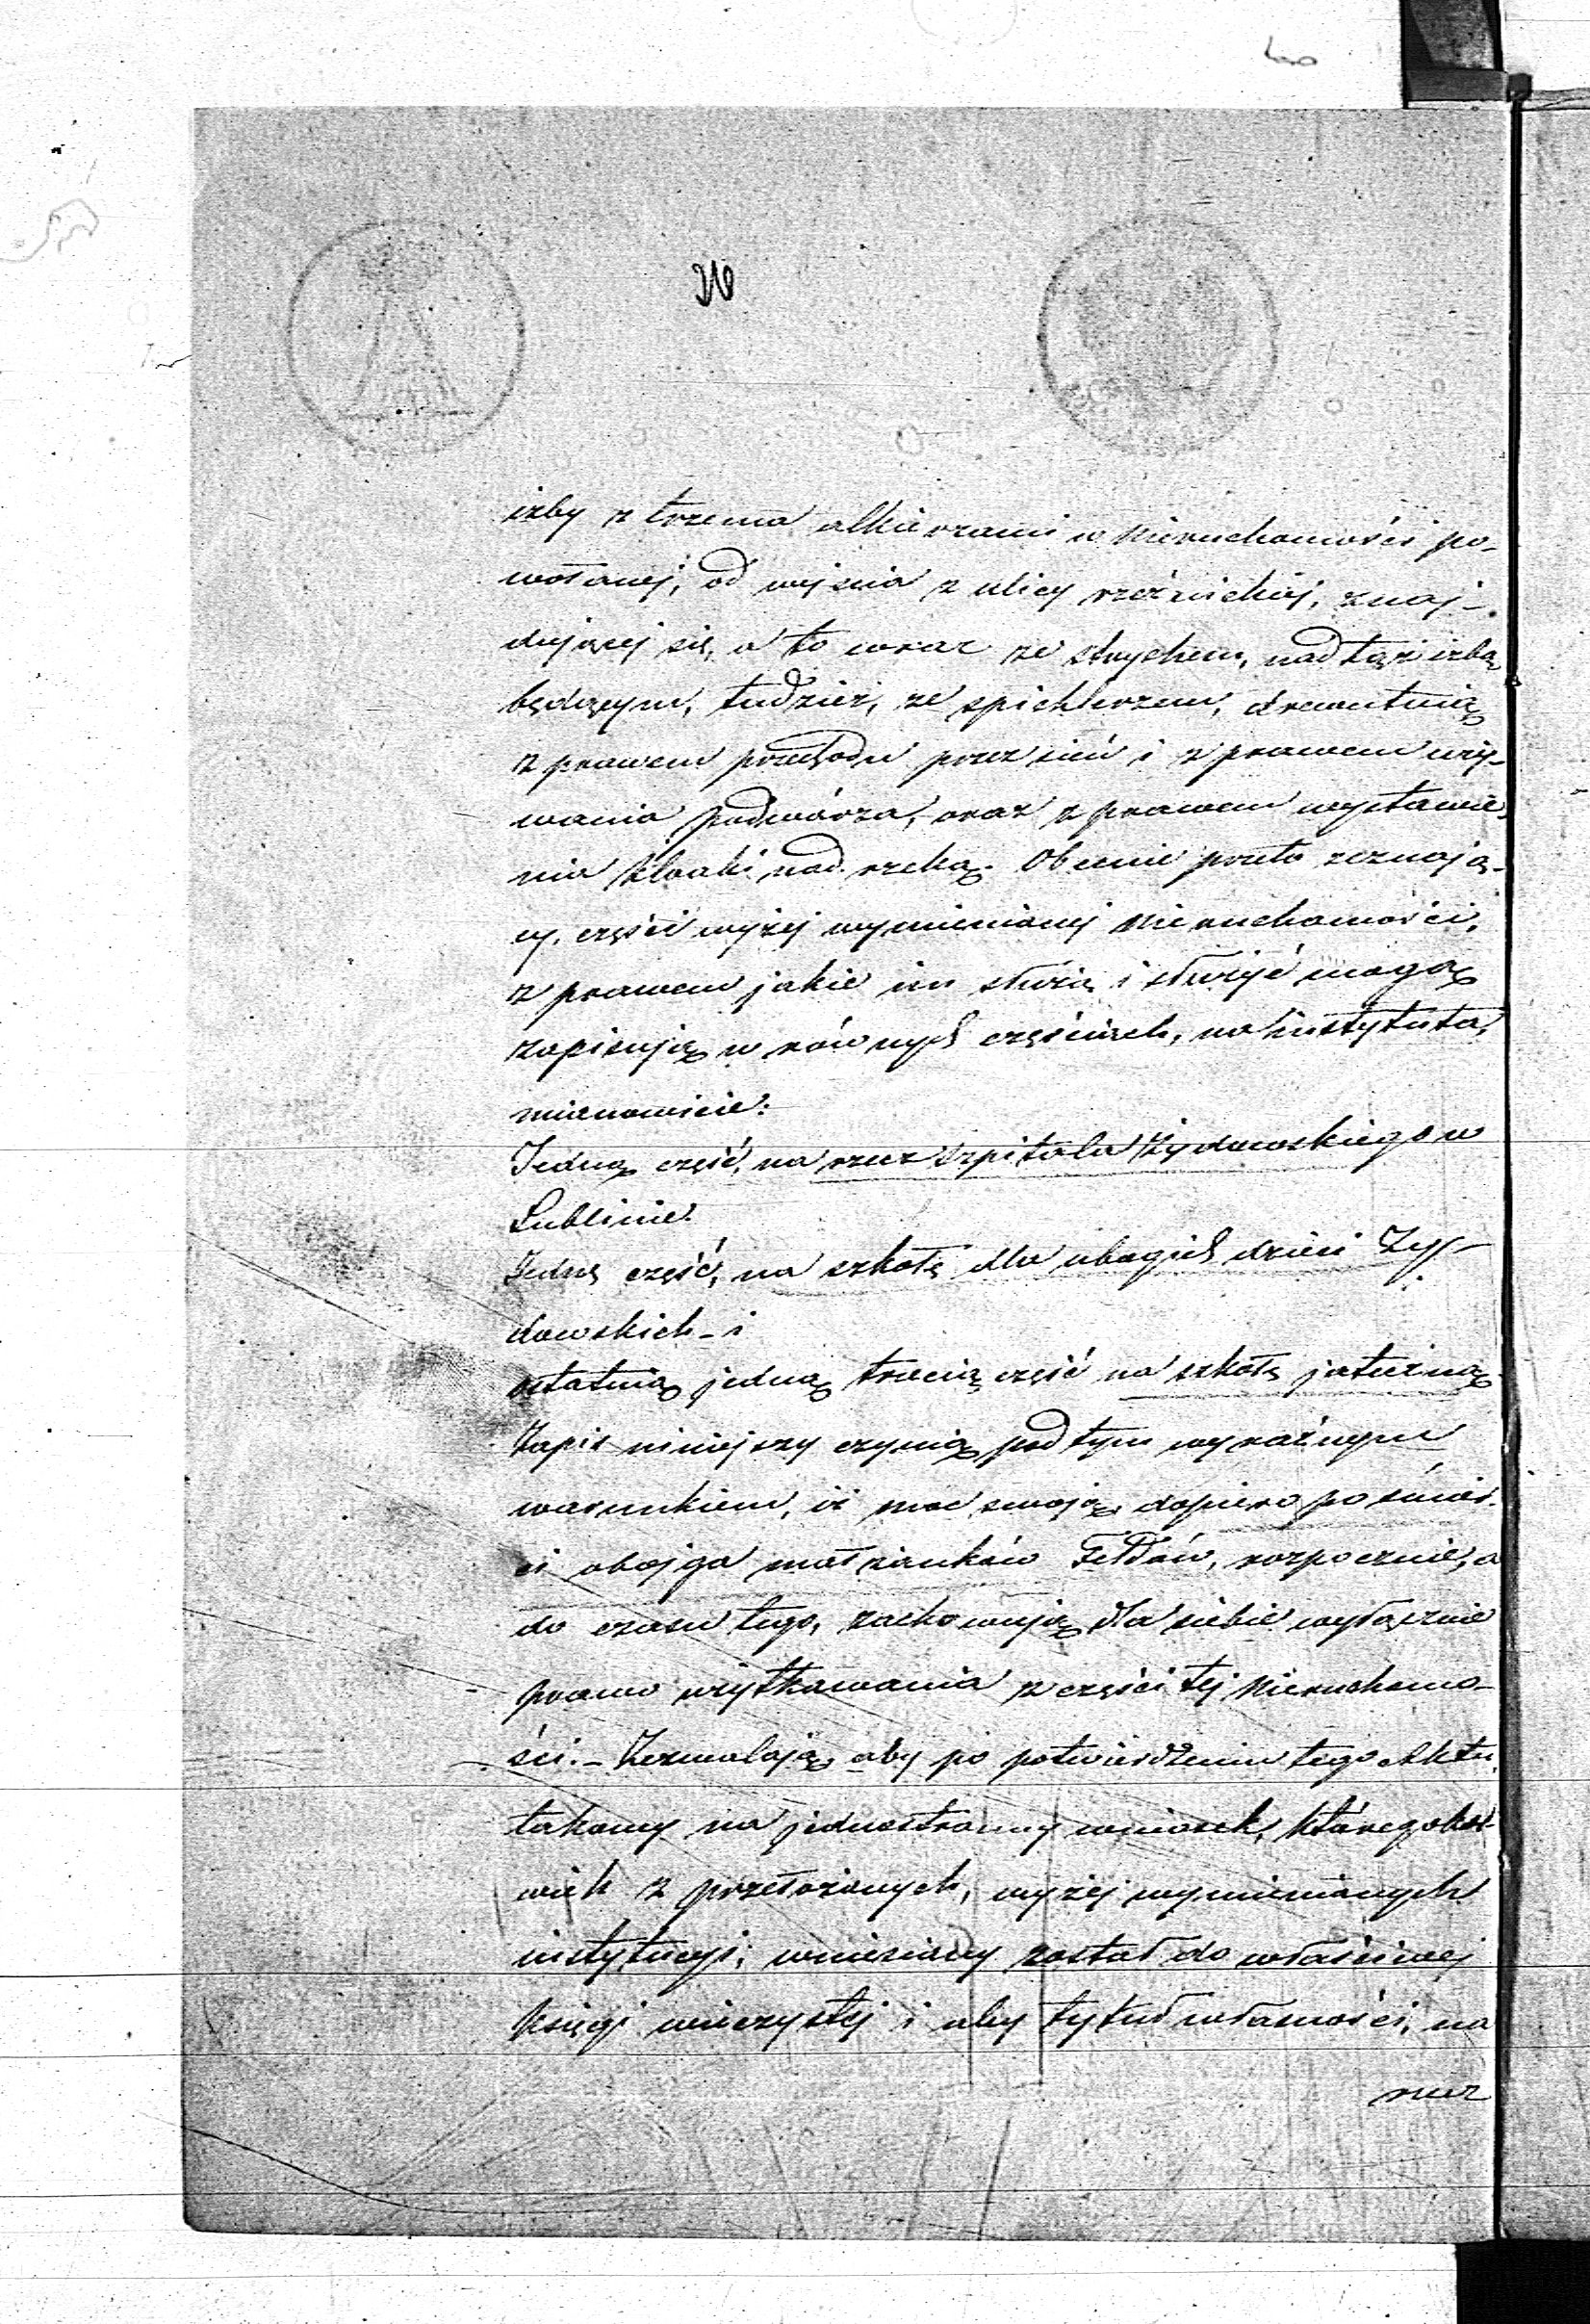 izby z trzema alkierzami w Nieruchomości po-
wołanej, od wejścia z ulicy rzeźnickiej, znaj-
dującej się, a to wraz ze strychem, nad tąż izbą
będącym, tudzież, ze spichlerzem, drewutnią
z prawem przechodu przez sień i z prawem uży-
wania podwórza, oraz z prawem wystawie-
nia kloaki nad rzeką. Obecnie przeto zeznają-
cy, części wyżej wymienionej Nieruchomości,
z prawem jakie im służą i służyć mogą
zapisują w równych częściach, na instytuta,
mianowicie:
Jedną część, na rzecz szpitala Żydowskiego w
Lublinie.
Jedną część, na szkołę dla ubogich dzieci Ży-
dowskich - i
ostatnią jedną trzecią część na szkołę jateczną.
Zapis niniejszy czynią pod tym wyraźnym
warunkiem, iż moc swoją, dopiero po śmier-
ci obojga małżonków Feldów, rozpocznie, a
do czasu tego, zachowują dla siebie wyłącznie
prawo użytkowania z części tej Nieruchomo-
ści. - Zezwalają, aby po potwierdzeniu tego Aktu
takowy na jednostronny wniosek, któregokol-
wiek z przełożonych, wyżej wymienionych
instytucyi, wniesiony został do właściwej
księgi wieczystej i aby tytuł własności, na
rzecz